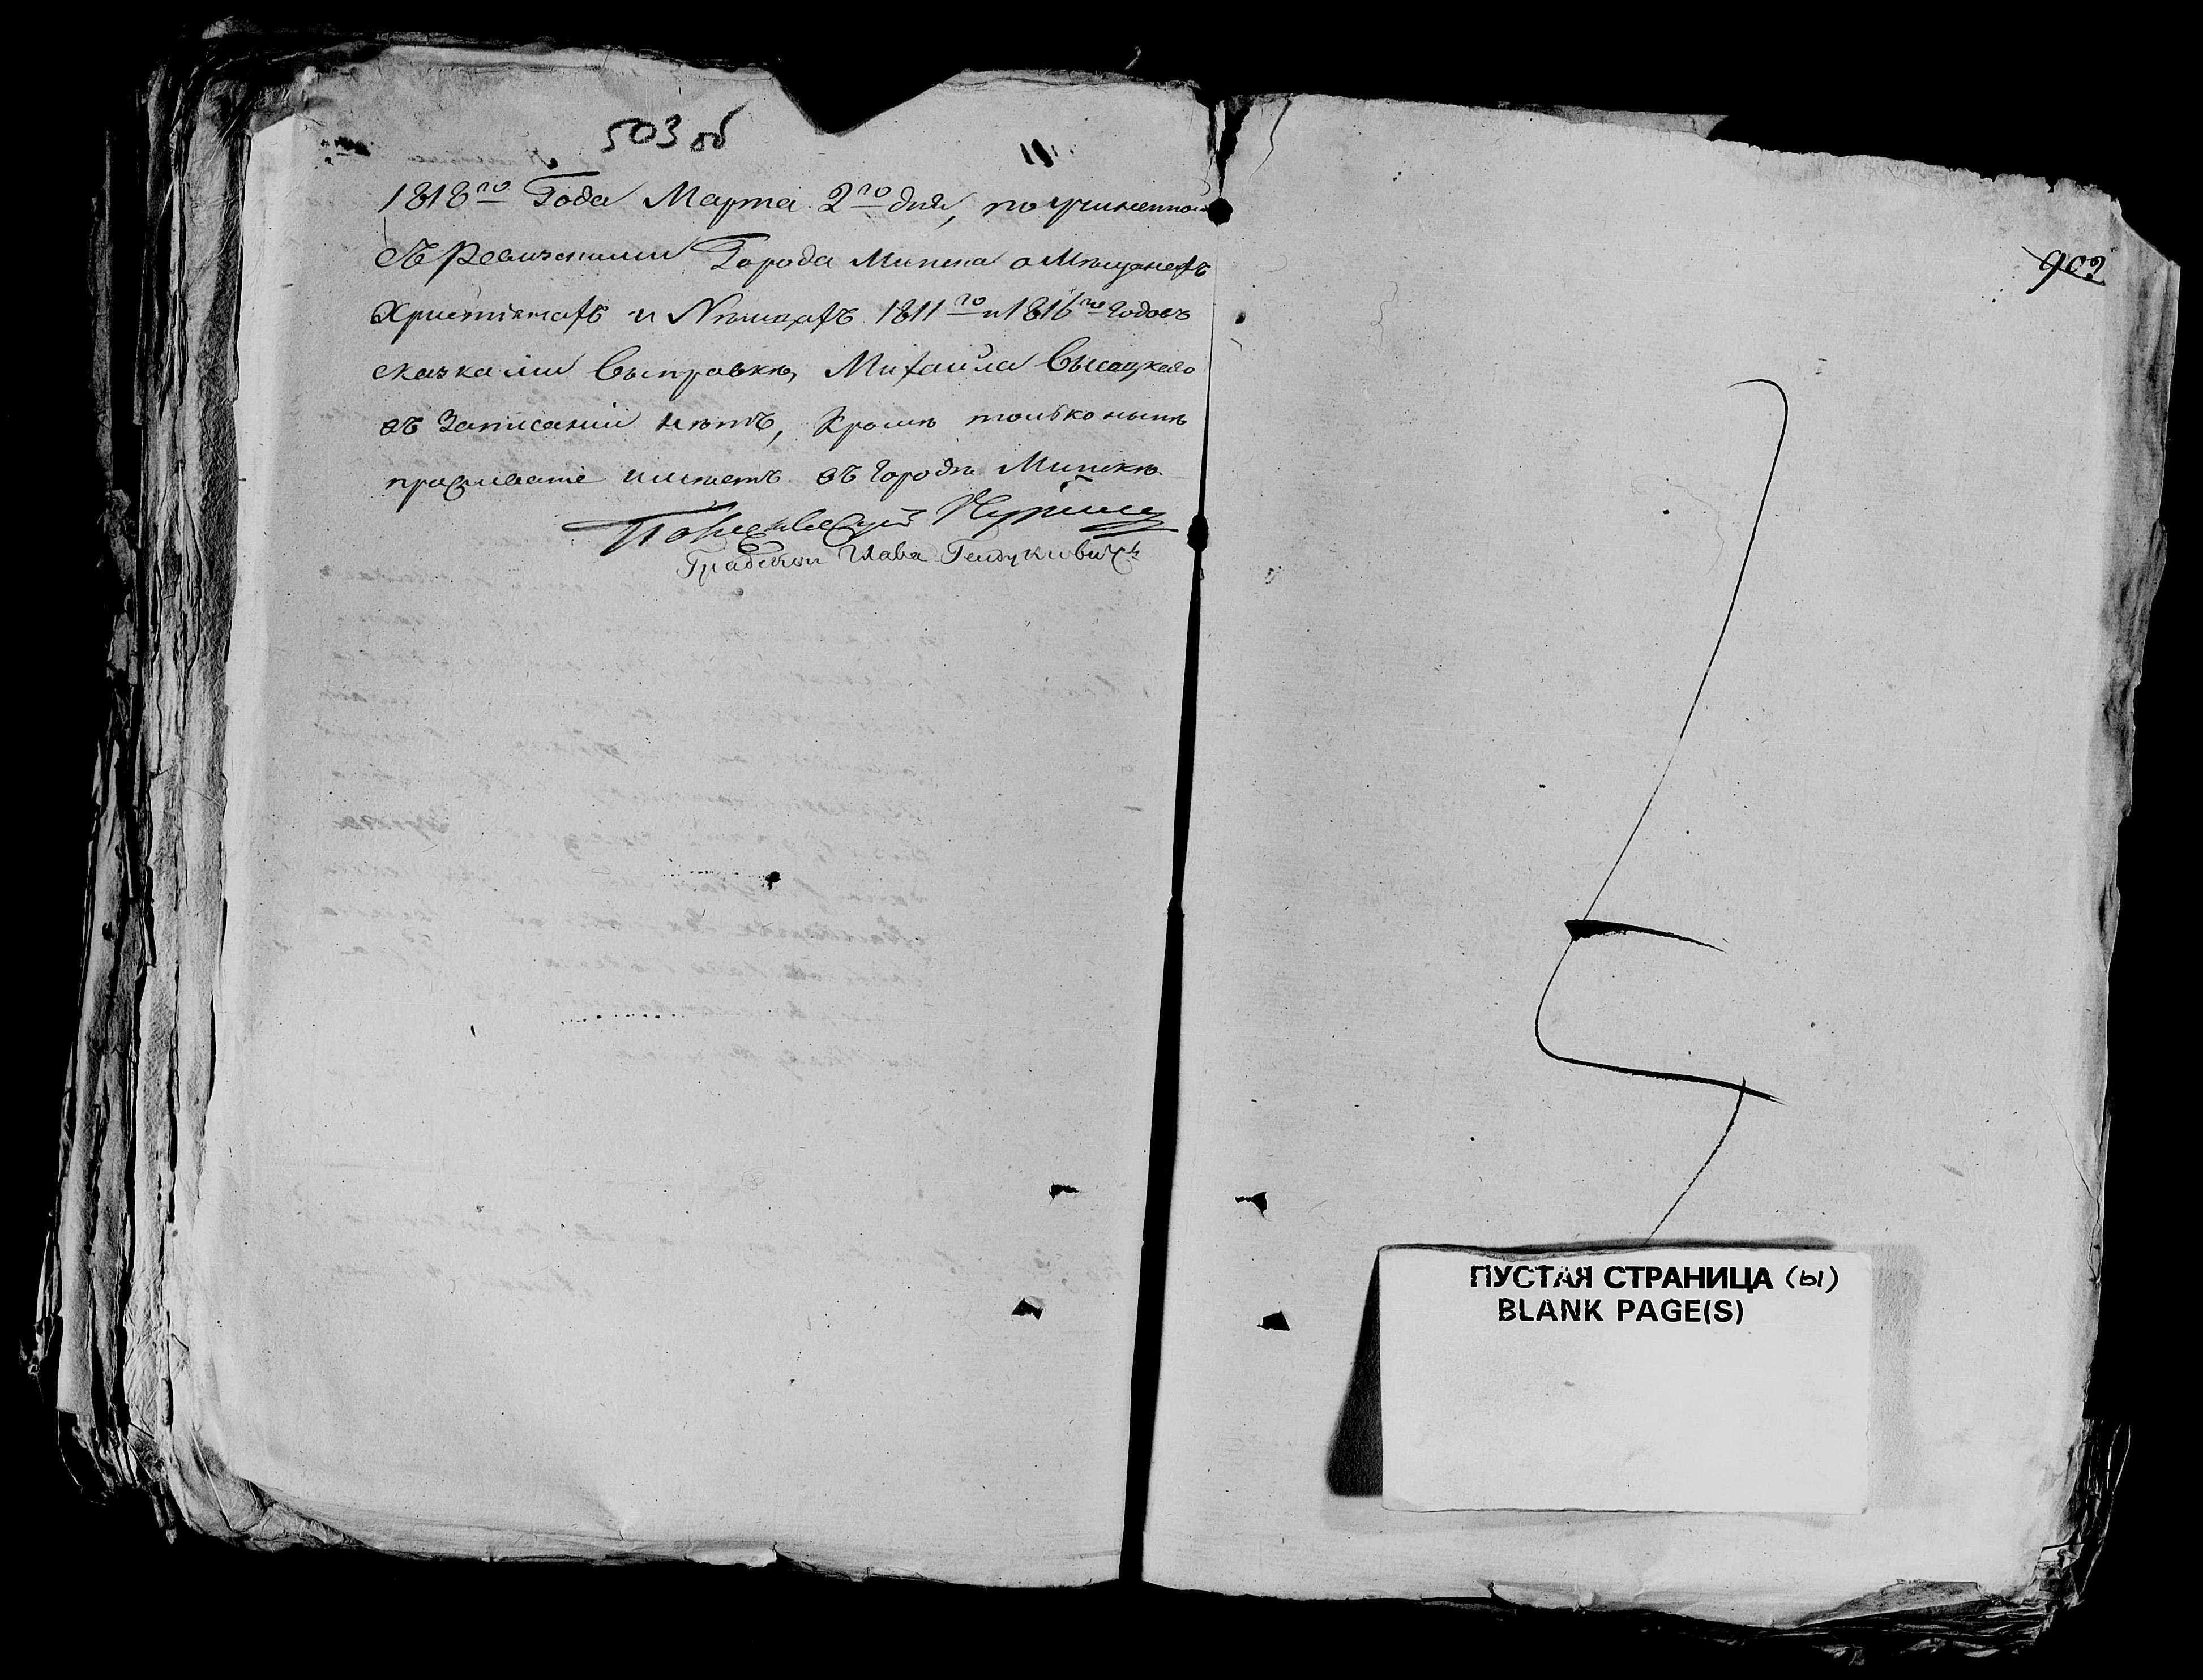 503 об
1818го Года Марта 2го дня, по учиненной
съ Ревизскими Города Минска о Мещанехъ
Християнахъ и 1811го и 1816го Годовъ
сказками выправке, Михайла Высоцкого
въ Записании нетъ, Кроме только ныне
проживание имеетъ въ Городе Минске
Градской Глава
902
ПУСТАЯ СТРАНИЦА (ы)
BLANK PAGE(S)